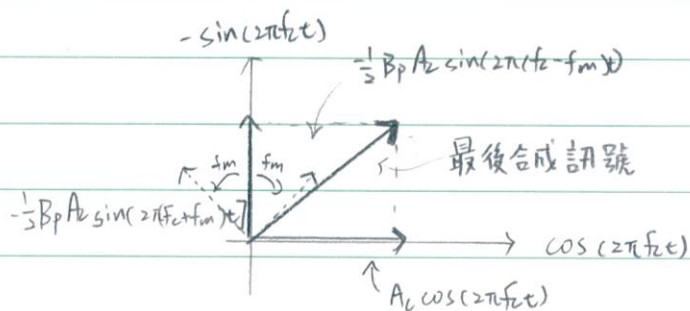 -sin(2πfct)
-½BpAc sin(2π(fc-fm)t)
fm fm
最後合成訊號
-½BpAc sin(2π(fc+fm)t]
cos(2πfct)
Ac cos(2πfct)